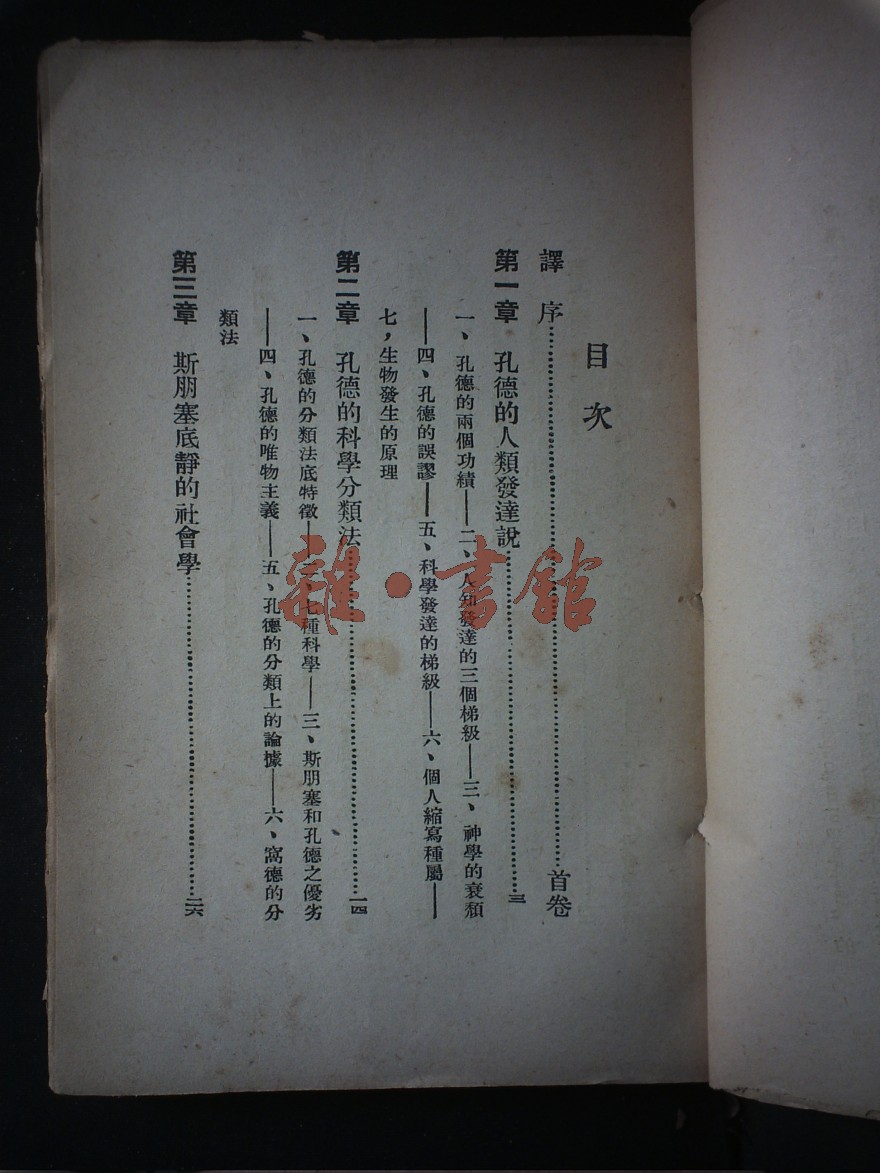 目次
譯序……首卷
第一章 孔德的人類發達說……三
一、孔德的兩個功績——二、人知發達的三個梯級——三、神學的衰頹
——四、孔德的誤謬——五、科學發達的梯級——六、個人縮寫種屬——
七，生物發生的原理
第二章 孔德的科學分類法……一四
一、孔德的分類法底特徵——二、七種科學——三、斯朋塞和孔德之優劣
——四、孔德的唯物主義——五、孔德的分類上的論據——六、窩德的分
類法
第三章 斯朋塞底靜的社會學……二六
雜·書館